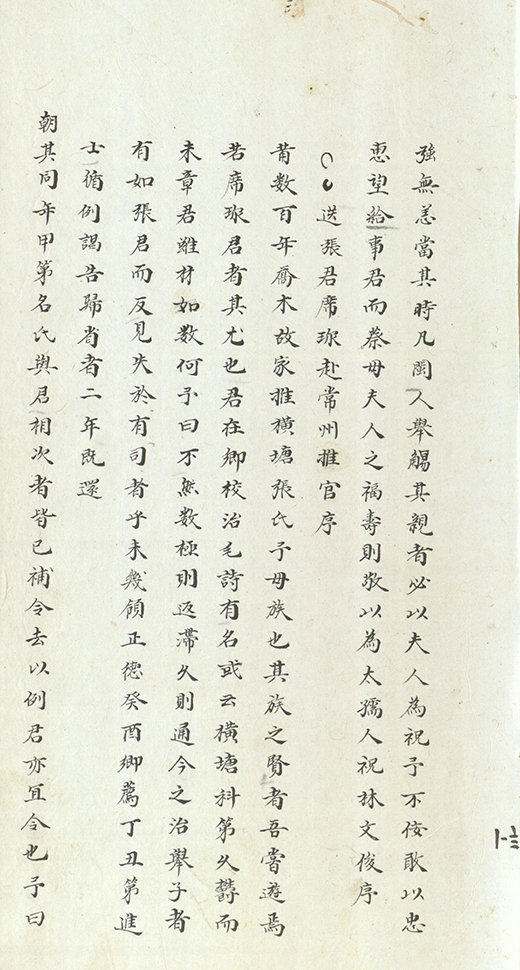 強無恙當其時凡閩人舉觴其親者必以夫人為祝予不佞敢以忠
惠望給事君而蔡母夫人之福壽則敬以為太孺人祝林文俊序
送張君席珎赴常州推官序
莆數百年喬木故家推橫塘張氏予母族也其族之賢者吾嘗遊焉
若席珎君者其尤也君在鄉校治毛詩有名或云橫塘科第久欝而
未章君雖材如數何予曰不然數極則返滯久則通今之治舉子者
有如張君而反見失於有司者乎未幾領正德癸酉鄉薦丁丑第進
士循例謁告歸省者二年既還
朝其同年甲第名氏與君相次者皆已補令去以例君亦宜令也予曰